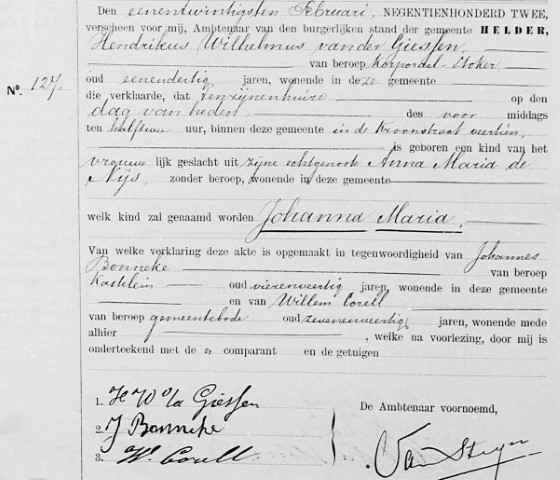 Den eenentwintigsten Februari, NEGENTIENHONDERD TWEE,
verscheen voor mij, Ambtenaar van den burgerlijken stand der gemeente HELDER,
Hendrikus Wilhelmus van der Giessen,
van beroep Korporaal-Stoker
No. 127.
oud eenendertig jaren, wonende in deze gemeente
die verklaarde, dat tenzijnenhuize op den
dag van heden des voor middags
ten half twee uur, binnen deze gemeente in de Kroonstraat veertien,
is geboren een kind van het
vrouwelijk geslacht uit zijne echtgenoote Anna Maria de
Nijs, zonder beroep, wonende in deze gemeente
welk kind zal genaamd worden Johanna Maria.
Van welke verklaring deze akte is opgemaakt in tegenwoordigheid van Johannes
Bonneke van beroep
Kastelein oud vierenveertig jaren, wonende in deze gemeente
en van Willem Corell
van beroep gemeentebode oud zevenenveertig jaren, wonende mede
alhier , welke na voorlezing, door mij is
onderteekend met de comparant en de getuigen
1. H W v/d Giessen
2. J Bonneke
3. W. Corell
De Ambtenaar voornoemd,